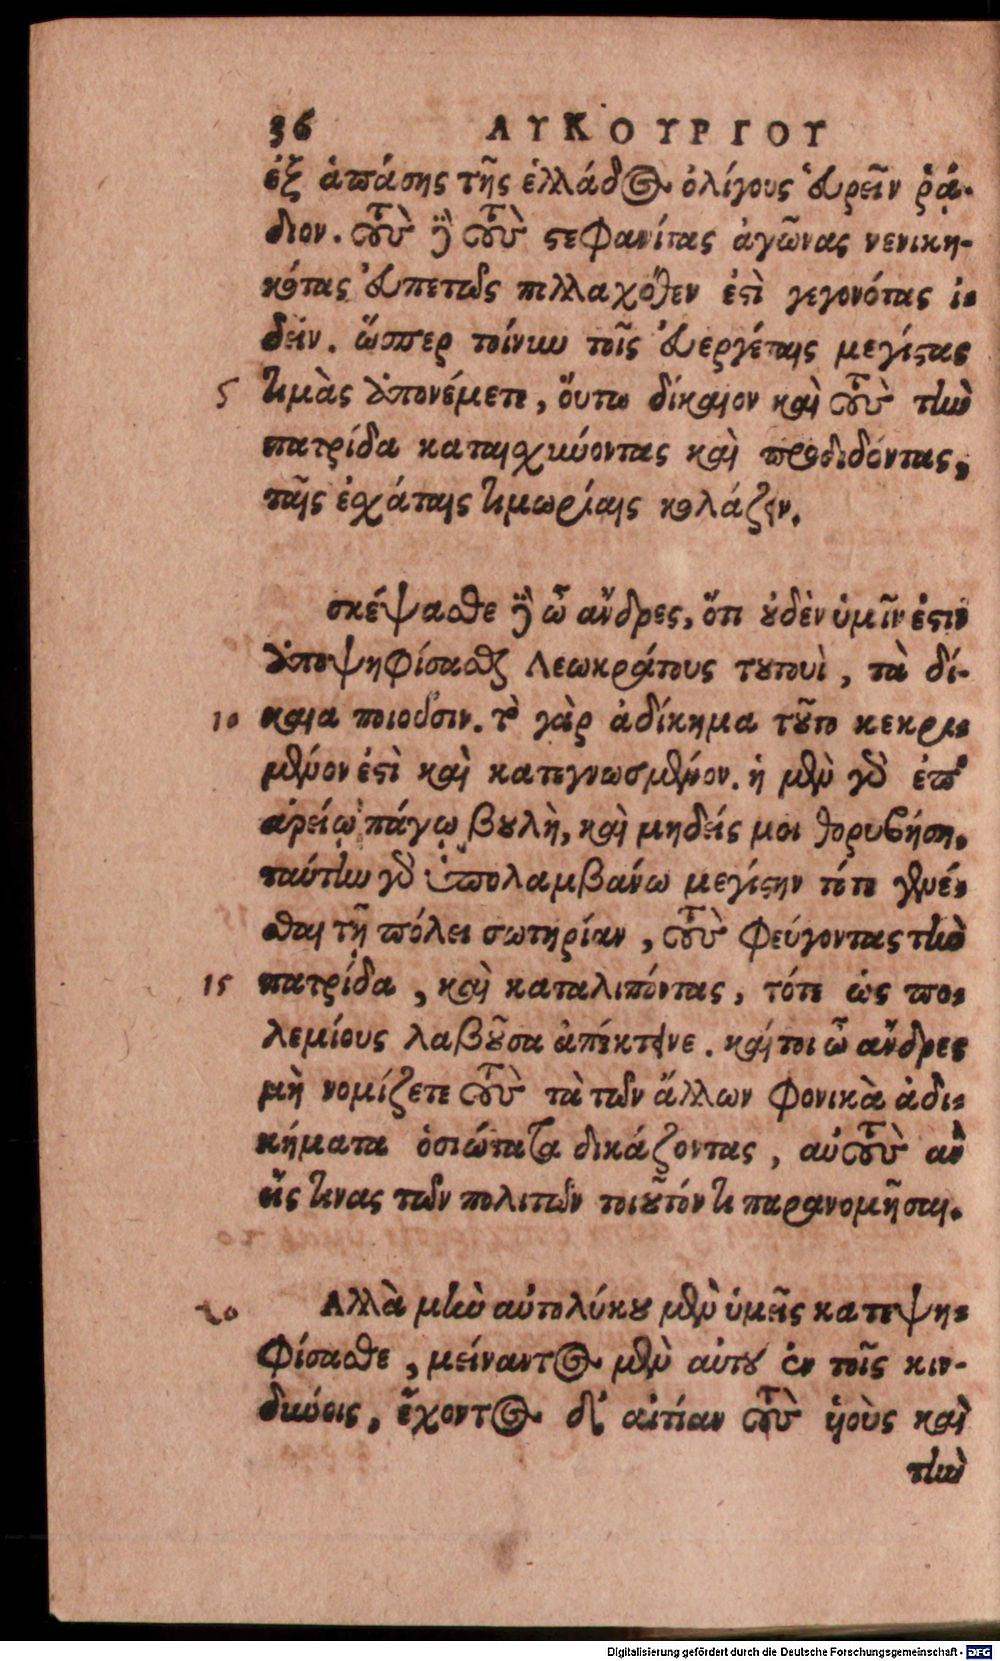 36 ΛΥΚΟΥΡΓΟΥ
ἐξ ἁπάσης τῆς ἑλλάδος ὀλίγους εὑρεῖν ῥᾴ-
διον. τοὺς δὲ τοὺς στεφανίτας ἀγῶνας νενικη-
κότας εὐπετῶς πολλαχόθεν ἐστὶ γεγονότας ἰ-
δεῖν. ὥσπερ τοίνυν τοῖς εὐεργέταις μεγίστας
5 τιμὰς ἀπονέμετε, ὅυτω δίκαιον καὶ τοὺς τὴν
πατρίδα καταισχύνοντας καὶ προδιδόντας,
ταῖς ἐσχάταις τιμωρίαις κολάζειν.
σκέψασθε δὲ ὦ ἄνδρες, ὅτι οὐδὲν ὑμῖν ἐστιν
ἀποψηφίσασθαι Λεωκράτους τουτουὶ, τὰ δί-
10 καια ποιοῦσιν. τὸ γὰρ ἀδίκημα τοῦτο κεκρι-
μένον ἐστὶ καὶ κατεγνωσμένον. ἡ μὲν γὰρ ἐν
ἀρείῳ πάγῳ βουλὴ, καὶ μηδείς μοι θορυβήσῃ.
ταύτην γὰρ ὑπολαμβάνω μεγίστην τότε γενέ-
σθαι τῇ πόλει σωτηρίαν, τοὺς φεύγοντας τὴν
15 πατρίδα, καὶ καταλιπόντας, τότε ὡς πο-
λεμίους λαβοῦσα ἀπέκτεινε. καίτοι ὦ ἄνδρες
μὴ νομίζετε τοὺς τὰ τῶν ἄλλων φονικὰ ἀδι-
κήματα ὁσιώτατα δικάζοντας, αὐτοὺς ἂν
εἴς τινας τῶν πολιτῶν τοιοῦτόν τι παρανομῆσαι.
20 Ἀλλὰ μὴν αὐτολύκου μὲν ὑμεῖς κατεψη-
φίσασθε, μείναντος μὲν αὐτοῦ ἐν τοῖς κιν-
δύνοις, ἔχοντος δ' αἰτίαν τοὺς υἱοὺς καὶ
τὴν
Digitalisierung gefördert durch die Deutsche Forschungsgemeinschaft - DFG